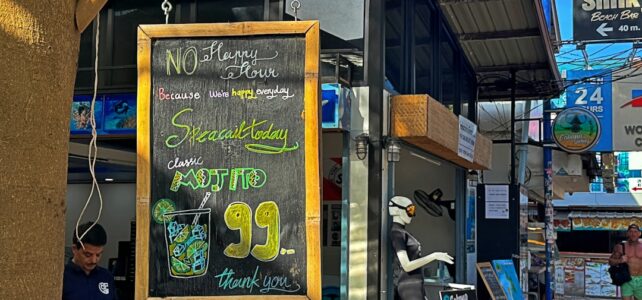 NO Happy
Hour
Because we're happy everyday
Speacail today
classic
MOJITO
99.-
thank you
BEACH BAR
← 40 m.
24
HOURS